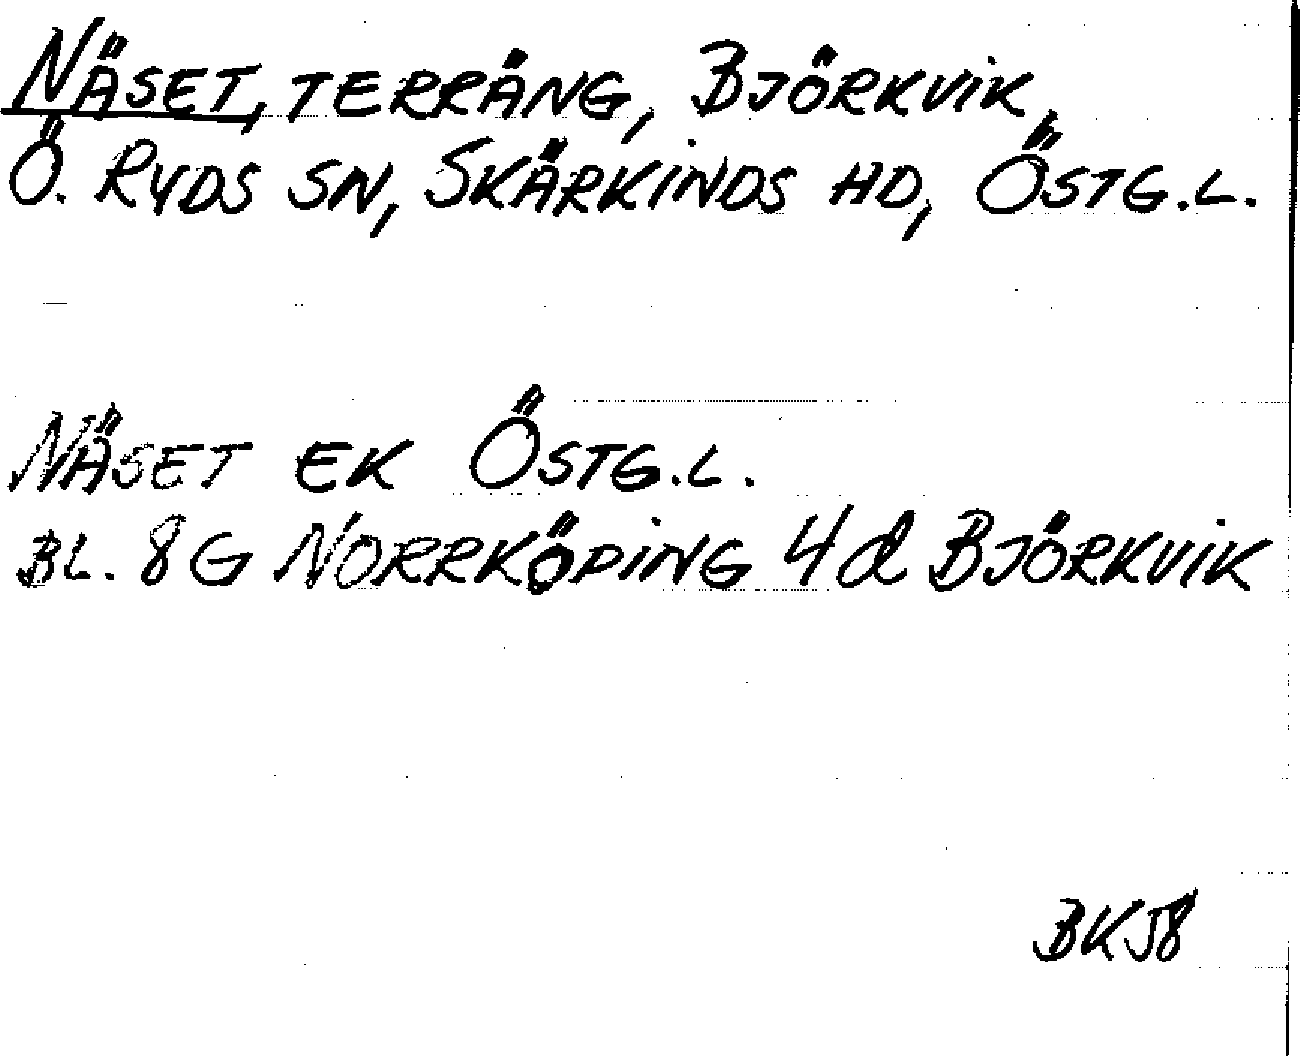 NÄSET, TERRÄNG, BJÖRKVIK,
Ö. RYDS SN, SKÄRKINDS HD, ÖSTG.L.
NÄSET EK ÖSTG.L.
BL. 8G NORRKÖPING 4d BJÖRKVIK
BK58